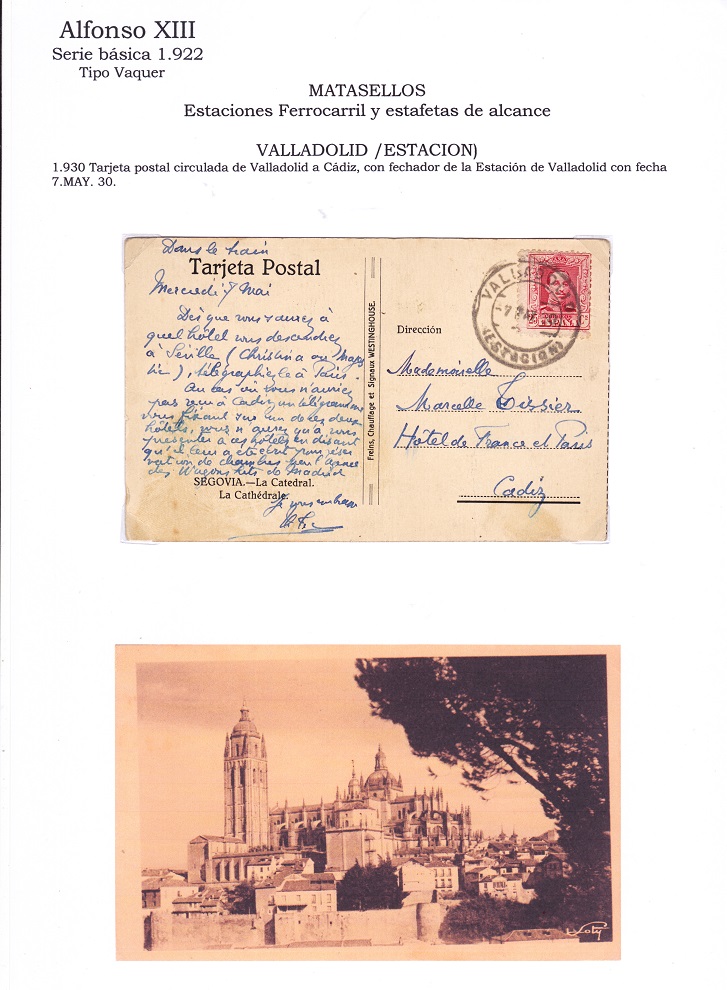 Alfonso XIII
Serie básica 1.922
Tipo Vaquer
MATASELLOS
Estaciones Ferrocarril y estafetas de alcance
VALLADOLID /ESTACION)
1.930 Tarjeta postal circulada de Valladolid a Cádiz, con fechador de la Estación de Valladolid con fecha
7.MAY. 30.
Dans le train
Tarjeta Postal
Mercredi 7 Mai
Dès que vous saurez à
quel hôtel vous descendrez
à Séville (Christina ou Majes
tic), télégraphiez le à Paris.
Au cas où vous n'auriez
pas reçu à Cadiz un télégramme
vous fixant sur un de ces deux
hôtels, vous n'aurez qu'à vous
présenter à ces hôtels en disant
qu'il leur a été écrit pour réser
vation de chambres par l'agence
des Wagons lits de Madrid
SEGOVIA.—La Catedral.
La Cathédrale.
Je vous embrasse
Freins, Chauffage et Signaux WESTINGHOUSE.
VALLADOLID
(ESTACION)
Dirección
Mademoiselle
Marcelle Tissier
Hôtel de France et Paris
Cadiz
Loty